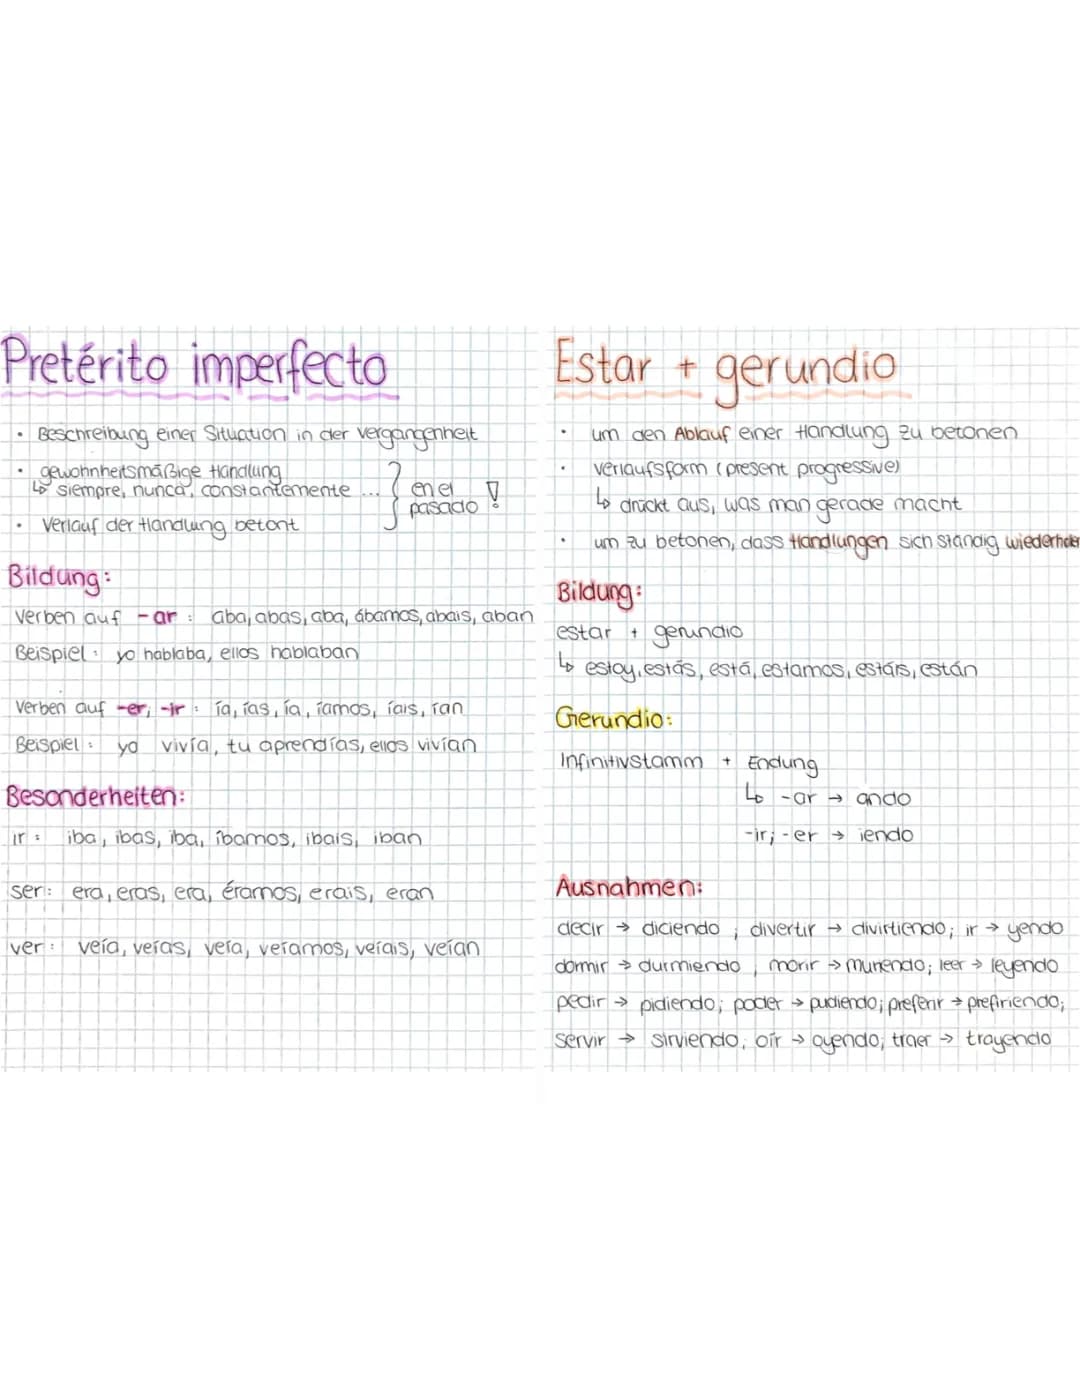 Pretérito imperfecto
• Beschreibung einer Situation in der Vergangenheit
• gewohnheitsmäßige Handlung
↳ siempre, nunca, constantemente ...
en el
pasado !
• Verlauf der Handlung betont
Bildung:
Verben auf -ar : aba, abas, aba, ábamos, abais, aban
Beispiel : yo hablaba, ellos hablaban
Verben auf -er, -ir : ía, ías, ía, íamos, íais, ían
Beispiel : yo vivía, tu aprendías, ellos vivían
Besonderheiten:
ir : iba, ibas, iba, íbamos, ibais, iban
ser : era, eras, era, éramos, erais, eran
ver : veía, veías, veía, veíamos, veíais, veían
Estar + gerundio
• um den Ablauf einer Handlung zu betonen
• Verlaufsform (present progressive)
↳ drückt aus, was man gerade macht
• um zu betonen, dass Handlungen sich ständig wiederholen
Bildung:
estar + gerundio
↳ estoy, estás, está, estamos, estáis, están
Gerundio:
Infinitivstamm + Endung
↳ -ar → ando
-ir; -er → iendo
Ausnahmen:
decir → diciendo ; divertir → divirtiendo; ir → yendo
dormir → durmiendo , morir → muriendo; leer → leyendo
pedir → pidiendo; poder → pudiendo; preferir → prefiriendo;
servir → sirviendo; oír → oyendo; traer → trayendo